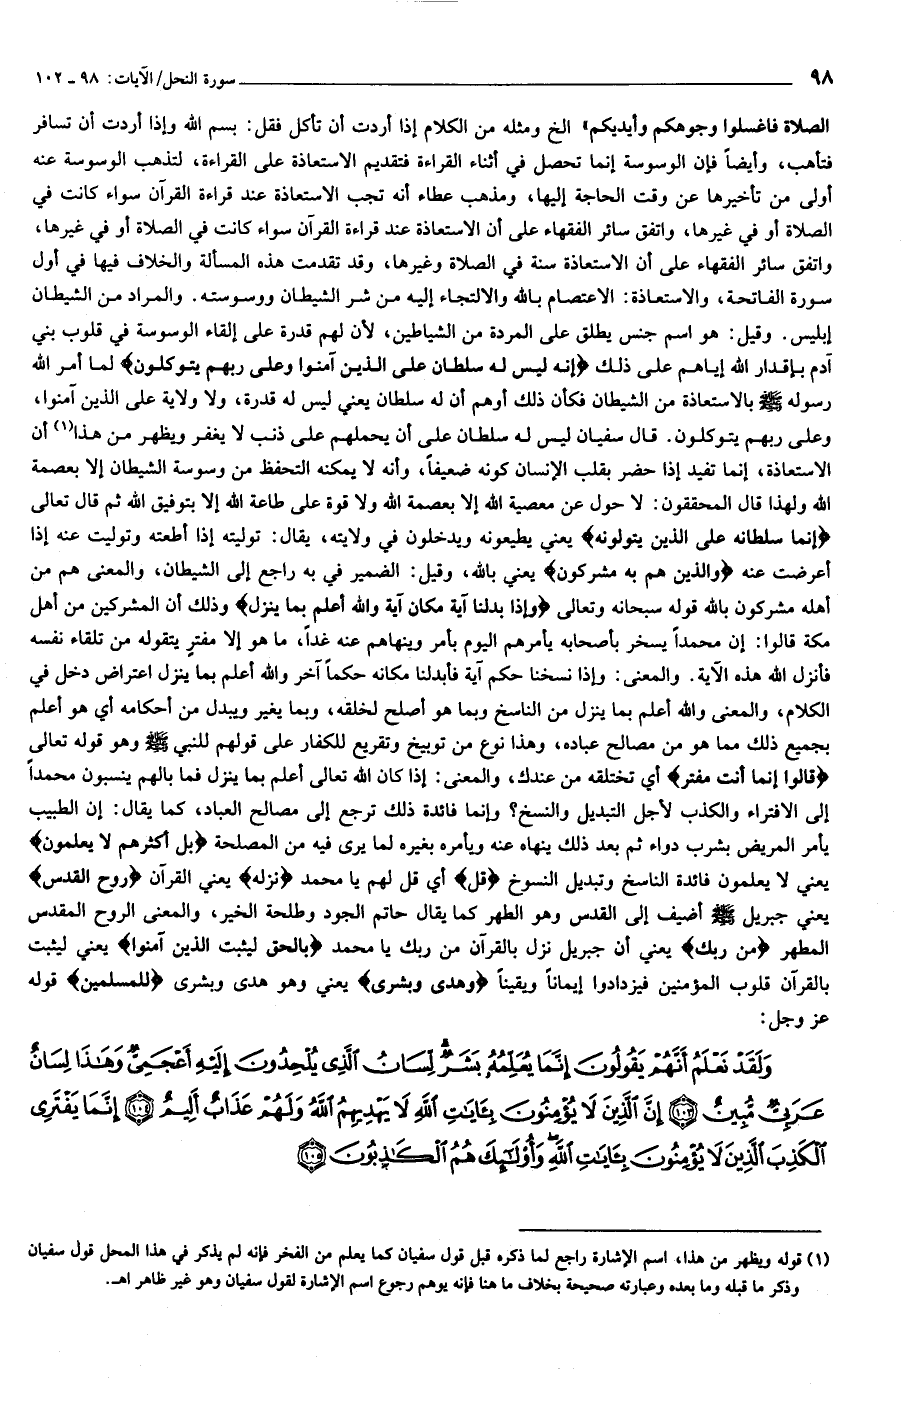 ٩٨ سورة النحل/ الآيات: ٩٨ ـ ١٠٢
الصلاة فاغسلوا وجوهكم وأيديكم﴾ الخ ومثله من الكلام إذا أردت أن تأكل فقل: بسم الله وإذا أردت أن تسافر
فتأهب، وأيضاً فإن الوسوسة إنما تحصل في أثناء القراءة فتقديم الاستعاذة على القراءة، لتذهب الوسوسة عنه
أولى من تأخيرها عن وقت الحاجة إليها، ومذهب عطاء أنه تجب الاستعاذة عند قراءة القرآن سواء كانت في
الصلاة أو في غيرها، واتفق سائر الفقهاء على أن الاستعاذة عند قراءة القرآن سواء كانت في الصلاة أو في غيرها،
واتفق سائر الفقهاء على أن الاستعاذة سنة في الصلاة وغيرها، وقد تقدمت هذه المسألة والخلاف فيها في أول
سورة الفاتحة، والاستعاذة: الاعتصام بالله والالتجاء إليه من شر الشيطان ووسوسته. والمراد من الشيطان
إبليس. وقيل: هو اسم جنس يطلق على المردة من الشياطين، لأن لهم قدرة على إلقاء الوسوسة في قلوب بني
آدم بإقدار الله إياهم على ذلك ﴿إنه ليس له سلطان على الذين آمنوا وعلى ربهم يتوكلون﴾ لما أمر الله
رسوله ﷺ بالاستعاذة من الشيطان فكأن ذلك أوهم أن له سلطان يعني ليس له قدرة، ولا ولاية على الذين آمنوا،
وعلى ربهم يتوكلون. قال سفيان ليس له سلطان على أن يحملهم على ذنب لا يغفر ويظهر من هذا(١) أن
الاستعاذة، إنما تفيد إذا حضر بقلب الإنسان كونه ضعيفاً، وأنه لا يمكنه التحفظ من وسوسة الشيطان إلا بعصمة
الله ولهذا قال المحققون: لا حول عن معصية الله إلا بعصمة الله ولا قوة على طاعة الله إلا بتوفيق الله ثم قال تعالى
﴿إنما سلطانه على الذين يتولونه﴾ يعني يطيعونه ويدخلون في ولايته، يقال: توليته إذا أطعته وتوليت عنه إذا
أعرضت عنه ﴿والذين هم به مشركون﴾ يعني بالله، وقيل: الضمير في به راجع إلى الشيطان، والمعنى هم من
أهله مشركون بالله قوله سبحانه وتعالى ﴿وإذا بدلنا آية مكان آية والله أعلم بما ينزل﴾ وذلك أن المشركين من أهل
مكة قالوا: إن محمداً يسخر بأصحابه يأمرهم اليوم بأمر وينهاهم عنه غداً، ما هو إلا مفترٍ يتقوله من تلقاء نفسه
فأنزل الله هذه الآية. والمعنى: وإذا نسخنا حكم آية فأبدلنا مكانه حكماً آخر والله أعلم بما ينزل اعتراض دخل في
الكلام، والمعنى والله أعلم بما ينزل من الناسخ وبما هو أصلح لخلقه، وبما يغير ويبدل من أحكامه أي هو أعلم
بجميع ذلك مما هو من مصالح عباده، وهذا نوع من توبيخ وتقريع للكفار على قولهم للنبي ﷺ وهو قوله تعالى
﴿قالوا إنما أنت مفتر﴾ أي تختلقه من عندك، والمعنى: إذا كان الله تعالى أعلم بما ينزل فما بالهم ينسبون محمداً
إلى الافتراء والكذب لأجل التبديل والنسخ؟ وإنما فائدة ذلك ترجع إلى مصالح العباد، كما يقال: إن الطبيب
يأمر المريض بشرب دواء ثم بعد ذلك ينهاه عنه ويأمره بغيره لما يرى فيه من المصلحة ﴿بل أكثرهم لا يعلمون﴾
يعني لا يعلمون فائدة الناسخ وتبديل النسوخ ﴿قل﴾ أي قل لهم يا محمد ﴿نزله﴾ يعني القرآن ﴿روح القدس﴾
يعني جبريل ﷺ أضيف إلى القدس وهو الطهر كما يقال حاتم الجود وطلحة الخير، والمعنى الروح المقدس
المطهر ﴿من ربك﴾ يعني أن جبريل نزل بالقرآن من ربك يا محمد ﴿بالحق ليثبت الذين آمنوا﴾ يعني ليثبت
بالقرآن قلوب المؤمنين فيزدادوا إيماناً ويقيناً ﴿وهدى وبشرى﴾ يعني وهو هدى وبشرى ﴿للمسلمين﴾ قوله
عز وجل:
وَلَقَدْ نَعْلَمُ أَنَّهُمْ يَقُولُونَ إِنَّمَا يُعَلِّمُهُۥ بَشَرٌ ۗ لِّسَانُ ٱلَّذِى يُلْحِدُونَ إِلَيْهِ أَعْجَمِىٌّ وَهَٰذَا لِسَانٌ
عَرَبِىٌّ مُّبِينٌ ۝١٠٣ إِنَّ ٱلَّذِينَ لَا يُؤْمِنُونَ بِـَٔايَٰتِ ٱللَّهِ لَا يَهْدِيهِمُ ٱللَّهُ وَلَهُمْ عَذَابٌ أَلِيمٌ ۝١٠٤ إِنَّمَا يَفْتَرِى
ٱلْكَذِبَ ٱلَّذِينَ لَا يُؤْمِنُونَ بِـَٔايَٰتِ ٱللَّهِ ۖ وَأُو۟لَٰٓئِكَ هُمُ ٱلْكَٰذِبُونَ ۝١٠٥
(١) قوله ويظهر من هذا، اسم الإشارة راجع لما ذكره قبل قول سفيان كما يعلم من الفخر فإنه لم يذكر في هذا المحل قول سفيان
وذكر ما قبله وما بعده وعبارته صحيحة بخلاف ما هنا فإنه يوهم رجوع اسم الإشارة لقول سفيان وهو غير ظاهر اهـ.